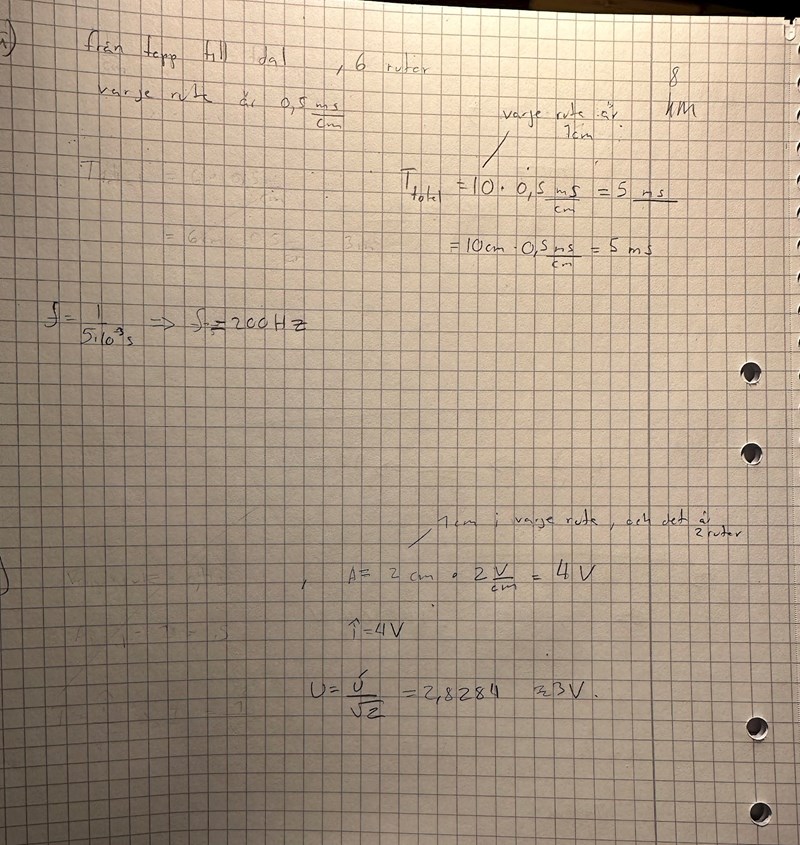 a)
från topp till dal , 6 rutor
varje ruta är 0,5 ms/cm
8
hm
varje ruta är
1cm
T total = 10 · 0,5 ms/cm = 5 ms
= 10cm · 0,5 ms/cm = 5 ms
f = 1/5·10⁻³s => f = 200 Hz
1cm i varje ruta, och det är
2 rutor
, A = 2 cm · 2 V/cm = 4 V
î = 4V
U = û/√2 = 2,8284 ≈ 3V.